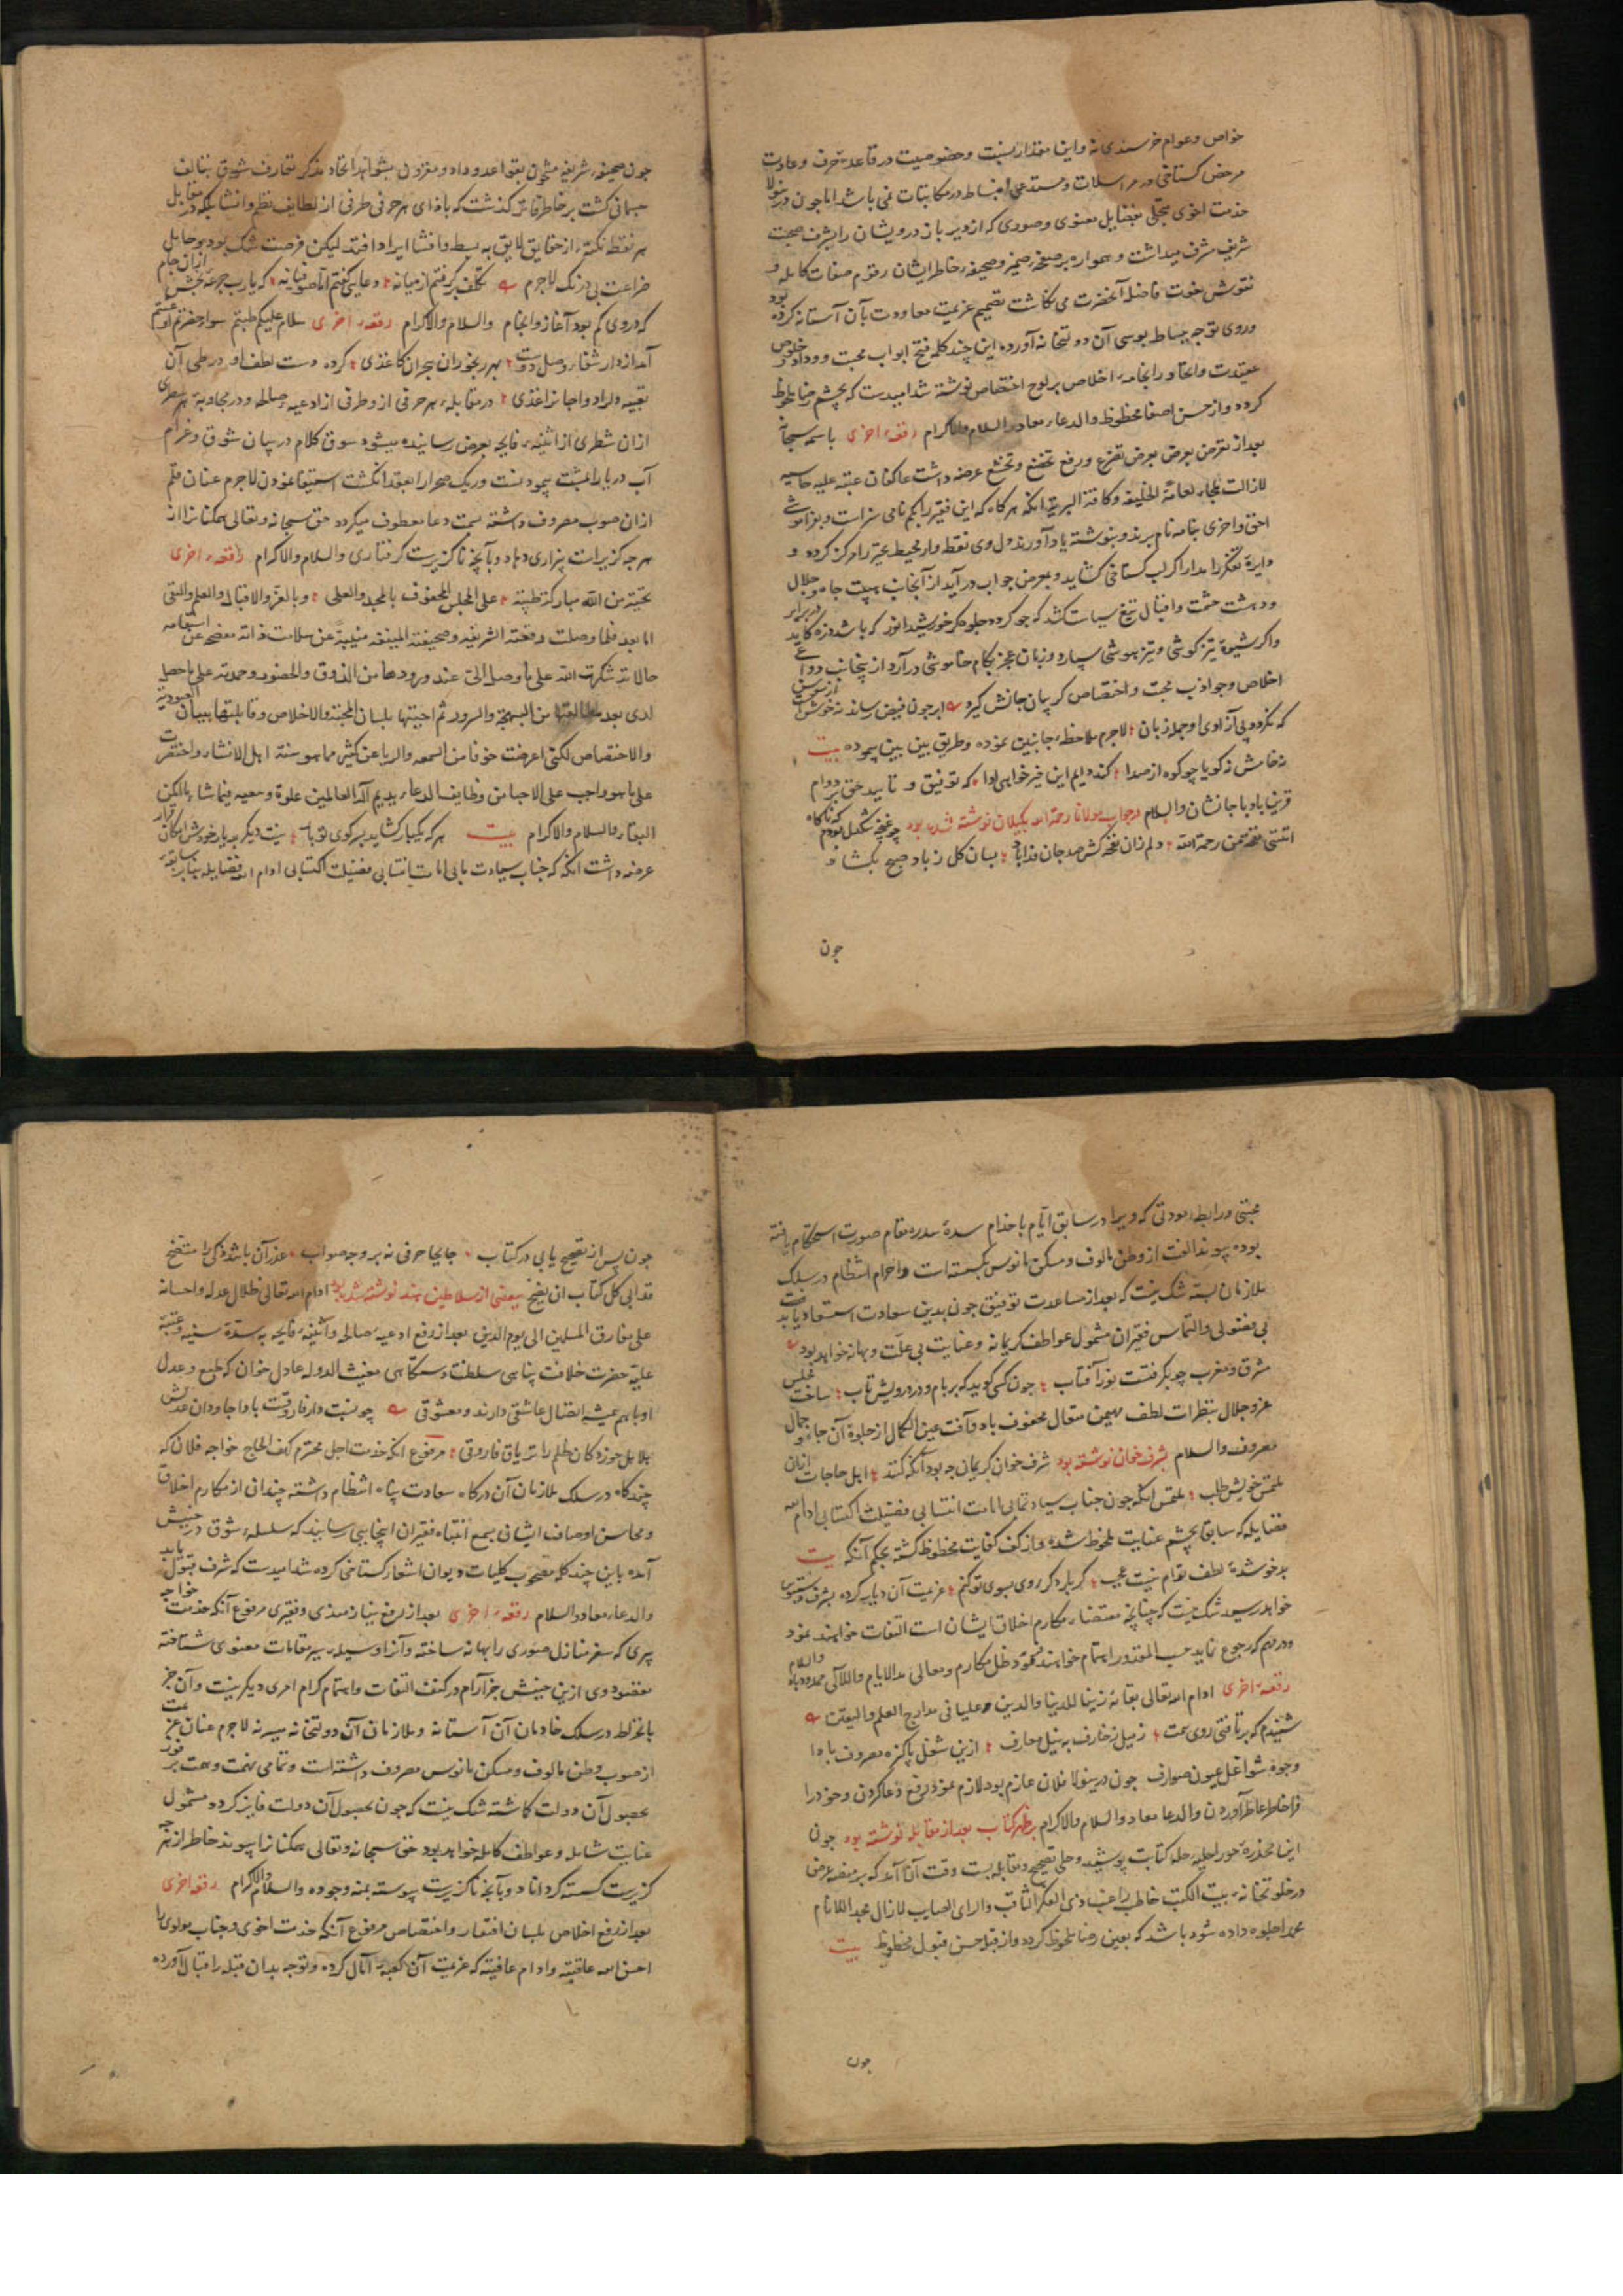 خواص و عوام خرسندی نه و این مقدار نسبت و خصوصیت در قاعده عرف و عادت
مرخص گستاخی در مراسلات و مستدعی انبساط در مکاتبات نمی باشد اما چون درینولا
خدمت اخوی متحلی بفضایل معنوی و صوری که از دیر باز درویشان را بشرف صحبت
شریف مشرف میداشت و همواره بر صفحه ضمیر و صحیفه خاطر ایشان رقوم صفات کامله و
نقوش نعوت فاضله آنحضرت می نگاشت تصمیم عزیمت معاودت بآن آستانه کرده بود
و روی توجه ببساط بوسی آن دولتخانه آورده این چند کلمه فتح ابواب محبت و وداد و خلوص
عقیدت و اتحاد را بخامه اخلاص بر لوح اختصاص نوشته شد امیدست که بچشم رضا ملحوظ
گردد و از حسن اصغا محظوظ و الدعاء معاد و السلام و الاکرام رقعه اخری باسمه سبحانه
بعد از تعرض بعرض تضرع و رفع تخضع و تخشع عرضه داشت عاکفان عتبه علیه حامیه
لازالت ملجاء لعامة الخلیقه و کافة البریة آنکه هر گاه که این فقیر را بحکم نامی سزاست و بفراموشی
احق و احری بنامه نام برند و بنوشته یاد آورند دل وی نقطه وار محیط حیرة را مرکز گردد و
دایرة تفکر را مدار اگر لب گستاخی گشاید و بعرض جواب در آید از آنجانب هیبت جاه و جلال
و دهشت حشمت و اقبال تیغ سیاست کشد که چو گرده جلوه گر خورشید انور که باشد ذره کاید در برابر
و اگر شیوه تیزگوشی و تیزهوشی سپارد و زبان عجز بکام خاموشی در آرد ازینجانب دواعی
اخلاص و جواذب محبت و اختصاص گریبان جانش گیرد ابر چون فیض رساند نه خوش است از سوسن
که نگردد پی آزادی او جمله زبان لاجرم ملاحظه جانبین نموده و طریق بین بین پیموده بیت
نه خامش نه گویا چو کوه از صدا کند دایم این خیرخواهی ادا که توفیق و تایید حق بر دوام
قرین باد با جانشان والسلام در جواب مولانا رحمة الله بگیلان نوشته شده بود چو غنچه تنگدل بودم که ناگاه
اتتنی نفحة من رحمة الله دلم زان نفحه کش صد جان فدا باد بسان گل ز باد صبح بگشاد
چون
چون صحیفه شریفه مشحون بقواعد وداد و مقرون بشواهد اتحاد مذکر تعارف سوابق بتالف
جسمانی گشت بر خاطر فاتر گذشت که باذای هر حرفی طرفی از لطایف نظم و انشا بلکه در مقابل
هر نقطه نکته از حقایق لایق به بسط و افشا ایراد افتد لیکن فرصت تنگ بود و حامل
ضراعت بی درنگ لاجرم تکلف برگرفتم از میانه دعایی گفتم اما صوفیانه که یارب جرعه بخش از آن جام
که در وی گم بود آغاز و انجام والسلام والاکرام رقعه اخری سلام علیکم طبتم سواد حضرتم او شمتم
آمد از دار شفاء وصل دوست بهر رنجوران هجران کاغذی کرده دست لطف او در طی آن
تعبیه دلداد و جانرا غذی در مقابله هر حرفی از وطرفی از ادعیه صالحه و در مجاوبه هر سطری
از آن شطری از اثنیه فایحه بعرض رسانیده میشود سوق کلام در بیان شوق و غرام
آب دریا را بمشت پیمودنست و ریگ صحرا را بعقد انگشت استیفا نمودن لاجرم عنان قلم
از آن صوب مصروف داشته بسمت دعا معطوف میگردد حق سبحانه و تعالی همکنانرا از
هر چه گزیراست بیزاری دهاد و بآنچه ناگزیرست گرفتاری والسلام والاکرام رقعه اخری
تحیة من الله مبارکة طیبة علی المجلس المحفوف بالمجد والعلی و بالعز والاقبال والعلم والتقی
اما بعد فلما وصلت رقعته الشریفه و صحیفته المنیفه منبیة عن سلامت ذاته مفصحة عن استقامه
حالاته شکرت الله علی ما وصل الی عند ورودها من الذوق والحضور و حمدته علی ما حصل
لدی بعد مطالعتها من البهجة والسرور ثم اجبتها بلسان المحبة والاخلاص و قابلتها ببیان العبودیة
والاختصاص لکنی اعرضت خوفا من السمعه والریا عن کثیر مما هو سنة اهل الانشاء و اختصرت
علی ما هو واجب علی الاحبا من وظایف الدعاء یدیم اله العالمین علوه و معیه فیما شاء بالمکن
البقاء والسلام والاکرام بیت هر که یکبار گشاید بسر کوی تو بار نیست دیگر بدیار خودش امکان قرار
عرضه داشت آنکه که جناب سیادت مابی امامت انتسابی فضیلت اکتسابی ادام الله فضایله بنا بر سابقه
محبتی و رابطه مودتی که ویرا در سابق ایام با خدام سده سدره مقام صورت استحکام یافته
بوده پیوند الفت از وطن مالوف و مسکن مانوس گسسته است و احرام انتظام در سلک
ملازمان بسته شک نیست که بعد از مساعدت توفیق چون بدین سعادت استسعاد یابد
بی مقتولی و التماس فقیران مشمول عواطف کریمانه و عنایت بی علت و بهانه خواهد بود
مشرق و مغرب چو بگرفتست نور آفتاب چون کسی گوید که بر بام و در درویش تاب ساخت مجلس
عز و جلال بنظرات لطف مهیمن متعال محفوف باد و آفت عین الکمال از جلوة آن جاه و جمال
معروف والسلام بشرف خوان نوشته بود شرف خوان کریمان چه بود آنکه کنند اهل حاجات از آن
ملتمس خویش طلب ملتمس آنکه چون جناب سیادت مابی امامت انتسابی فضیلت اکتسابی ادام الله
فضایله که سابقا بچشم عنایت ملحوظ شده و از کف کفایت محظوظ گشته بحکم آنکه بیت
بد خو شده لطف توام نیست عجب گر بار دگر روی بسوی تو کنم عزیمت آن دیار کرده بشرف دستبوس
خواهد رسید شک نیست که چنانچه مقتضاء مکارم اخلاق ایشان است التفات خواهند نمود
و در مهم که رجوع نماید حسب المقدور اهتمام خواهند فرمود ظل مکارم و معالی مد الایام واللیالی ممدود باد والسلام
رقعه اخری ادام الله تعالی بقائه زینا للدنیا والدین و علیا فی مدارج العلم والیقین
شنیدم که بر تافتی روی همت ز میل زخارف به نیل معارف ازین شغل پاکیزه مصروف بادا
وجوه شواغل عیون صوارف چون درینولا فلان عازم بود لازم نمود رفع دعا کردن و خود را
فراخاطر عاطر آوردن والدعا معاد والسلام والاکرام بر ظهر کتاب بعد از مقابله نوشته بود چون
این مخدره حورا حلیه حله کتابت پوشید و حلی تصحیح و مقابله بست وقت آن آمد که بر منصه عرض
در خلوتخانه بیت الکتب خاطب راغب ذی الفکر الثاقب والرای الصایب لازال مجد اللانام
ممجدا جلوه داده شود باشد که بعین رضا ملحوظ گردد و از قبل حسن قبول محظوظ بیت
چون
چون پس از تصحیح یابی در کتاب جابجا حرفی نه بر وجه صواب عذر آن باشد ذکی را متضح
قد ابی کل کتاب ان یصح ببعضی از سلاطین هند نوشته شده بود ادام الله تعالی ظلال عدله و احسانه
علی مفارق المسلمین الی یوم الدین بعد از رفع ادعیه صالحه و اثنیه فایحه به سده سنیه و عتبه
علیه حضرت خلافت پناهی سلطنت دستگاهی مغیث الدوله عادل خوان که طبع و عدل
او باهم همیشه اتصال عاشقی دارند و معشوقی چو نسبت دار فاروقست بادا جاودان عدلش
بلاهل جور دکان ظلم را تریاق فاروقی مرفوع آنکه خدمت اجل محترم کهف الحاج خواجه فلان که
چندگاه در سلک ملازمان آن درگاه سعادت پناه انتظام داشته چندانی از مکارم اخلاق
و محاسن اوصاف ایشانی بسمع انتباه فقیران اینجایی رسانیدند که سلسله شوق در جنبش
آمده باین چند کلمه مصحوب کلیات دیوان اشعار گستاخی کرده شد امیدست که شرف قبول یابد
والدعاء معاد والسلام رقعه اخری بعد از رفع نیازمندی و فقیری مرفوع آنکه خدمت خواجه
پیری که سفر منازل صوری را بهانه ساخته و آنرا وسیله سیر مقامات معنوی شناخته
مقصود وی ازین جنبش جز آرام در کنف التفات و اهتمام کرام امری دیگر نیست و آن جز
بانخراط در سلک خادمان آن آستانه و ملازمان آن دولتخانه میسر نه لاجرم عنان عزیمت
از صوب وطن مالوف و مسکن مانوس مصروف داشته است و تمامی نهمت و همت بر فوز
بحصول آن دولت گماشته شک نیست که چون بحصول آن دولت فایز گردد مشمول
عنایت شامله و عواطف کامله خواهد بود حق سبحانه و تعالی همکنانرا پیوند خاطر از هر چه
گزیرست گسسته گرداناد و بآنچه ناگزیرست پیوسته بمنه وجوده والسلام والاکرام رقعه اخری
بعد از رفع اخلاص بلسان افتقار و اختصاص مرفوع آنکه خدمت اخوی و جناب مولوی را
احسن الله عاقبته و ادام عافیته که عزیمت آن کعبه آمال کرده و توجه بدان قبله اقبال آورده